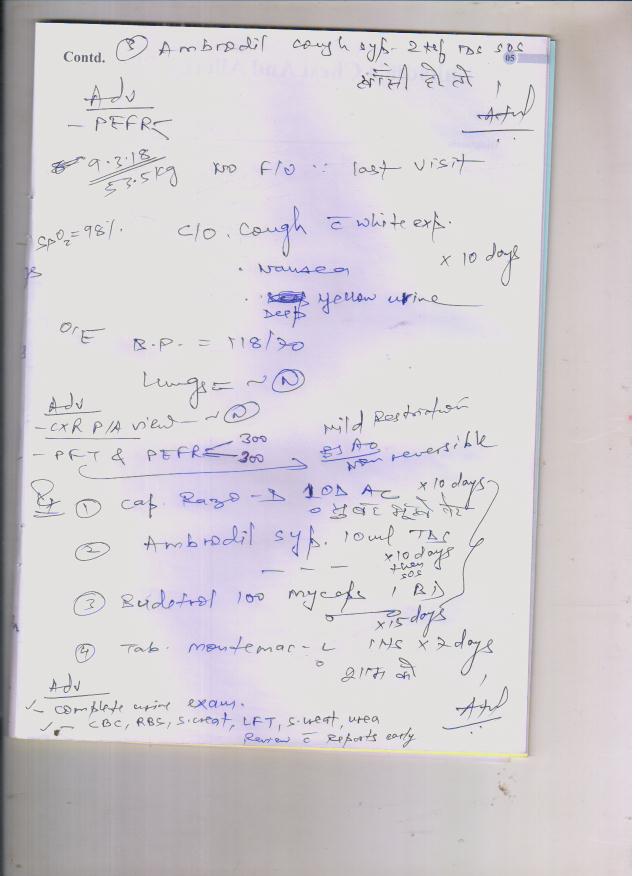 Contd. ③ Ambrodil cough syp. 2 tsf TDS SOS
05
खाँसी हो तो
Adv
- PEFR
9.3.18
53.5 kg
NO F/O ∵ last visit
SpO₂ = 98%.
C/O. Cough c̄ white exp.
• Nausea
x 10 days
• Deep yellow urine
O/E
B.P. = 118/70
Lungs = ~ Ⓝ
Adv
- CXR P/A view - ~ Ⓝ
- PFT & PEFR 300
300
Mild Restriction
Non reversible
Rx ① Cap. Razo-D 1 OD AC x 10 days
② Ambrodil syp. 10ml TDS
x 10 days
then
SOS
③ 100 1 BD
x 15 days
④ Tab. Montemac-L 1 HS x 7 days
शाम को
Adv
✓- Complete urine exam.
✓- CBC, RBS, S.creat, LFT, S.creat, urea
Review c̄ reports early